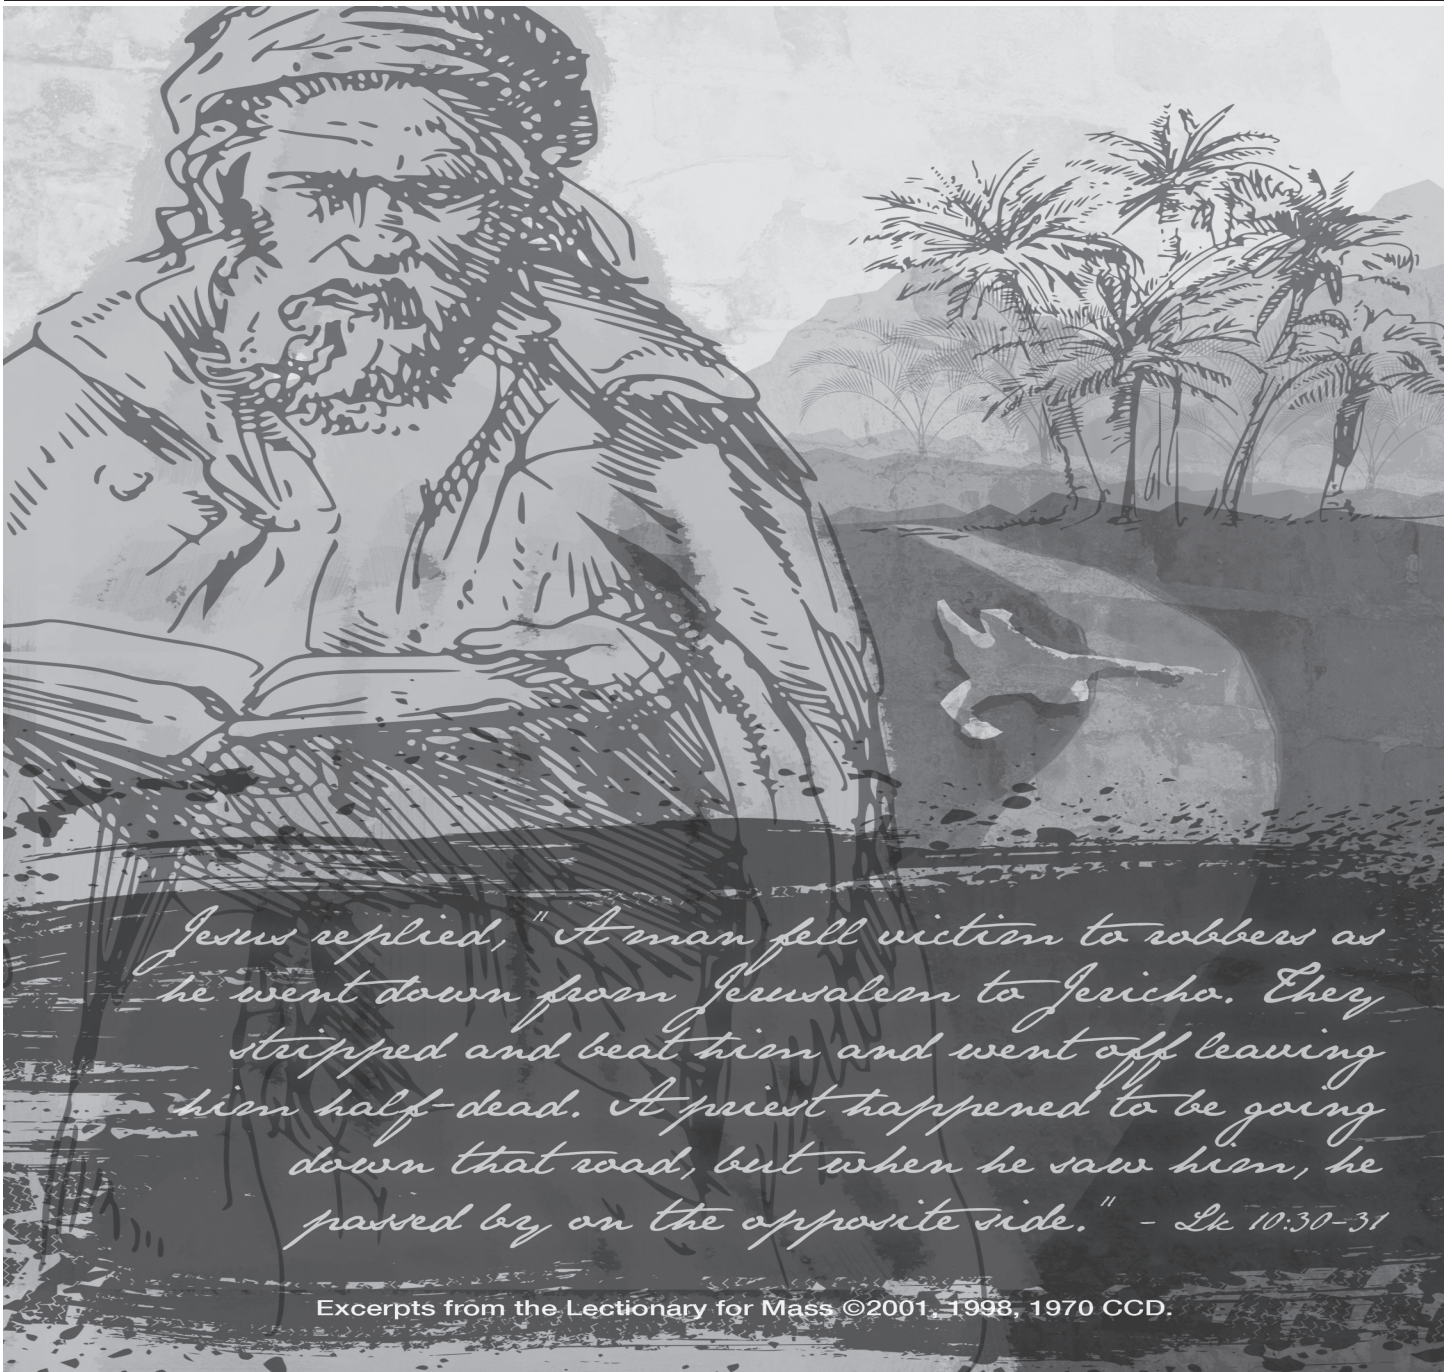 Jesus replied, "A man fell victim to robbers as
he went down from Jerusalem to Jericho. They
stripped and beat him and went off leaving
him half-dead. A priest happened to be going
down that road, but when he saw him, he
passed by on the opposite side." - Lk 10:30-31
Excerpts from the Lectionary for Mass ©2001, 1998, 1970 CCD.